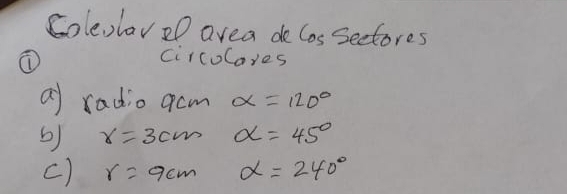 Calcular el area de los Sectores
① circulares
a) radio 9cm α = 120°
b) r = 3cm α = 45°
c) r = 9cm α = 240°